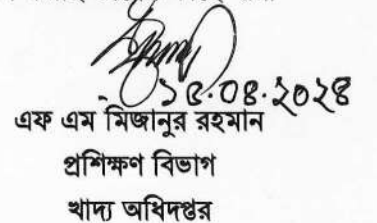 ১৫.০৪.২০২৪
এফ এম মিজানুর রহমান
প্রশিক্ষণ বিভাগ
খাদ্য অধিদপ্তর